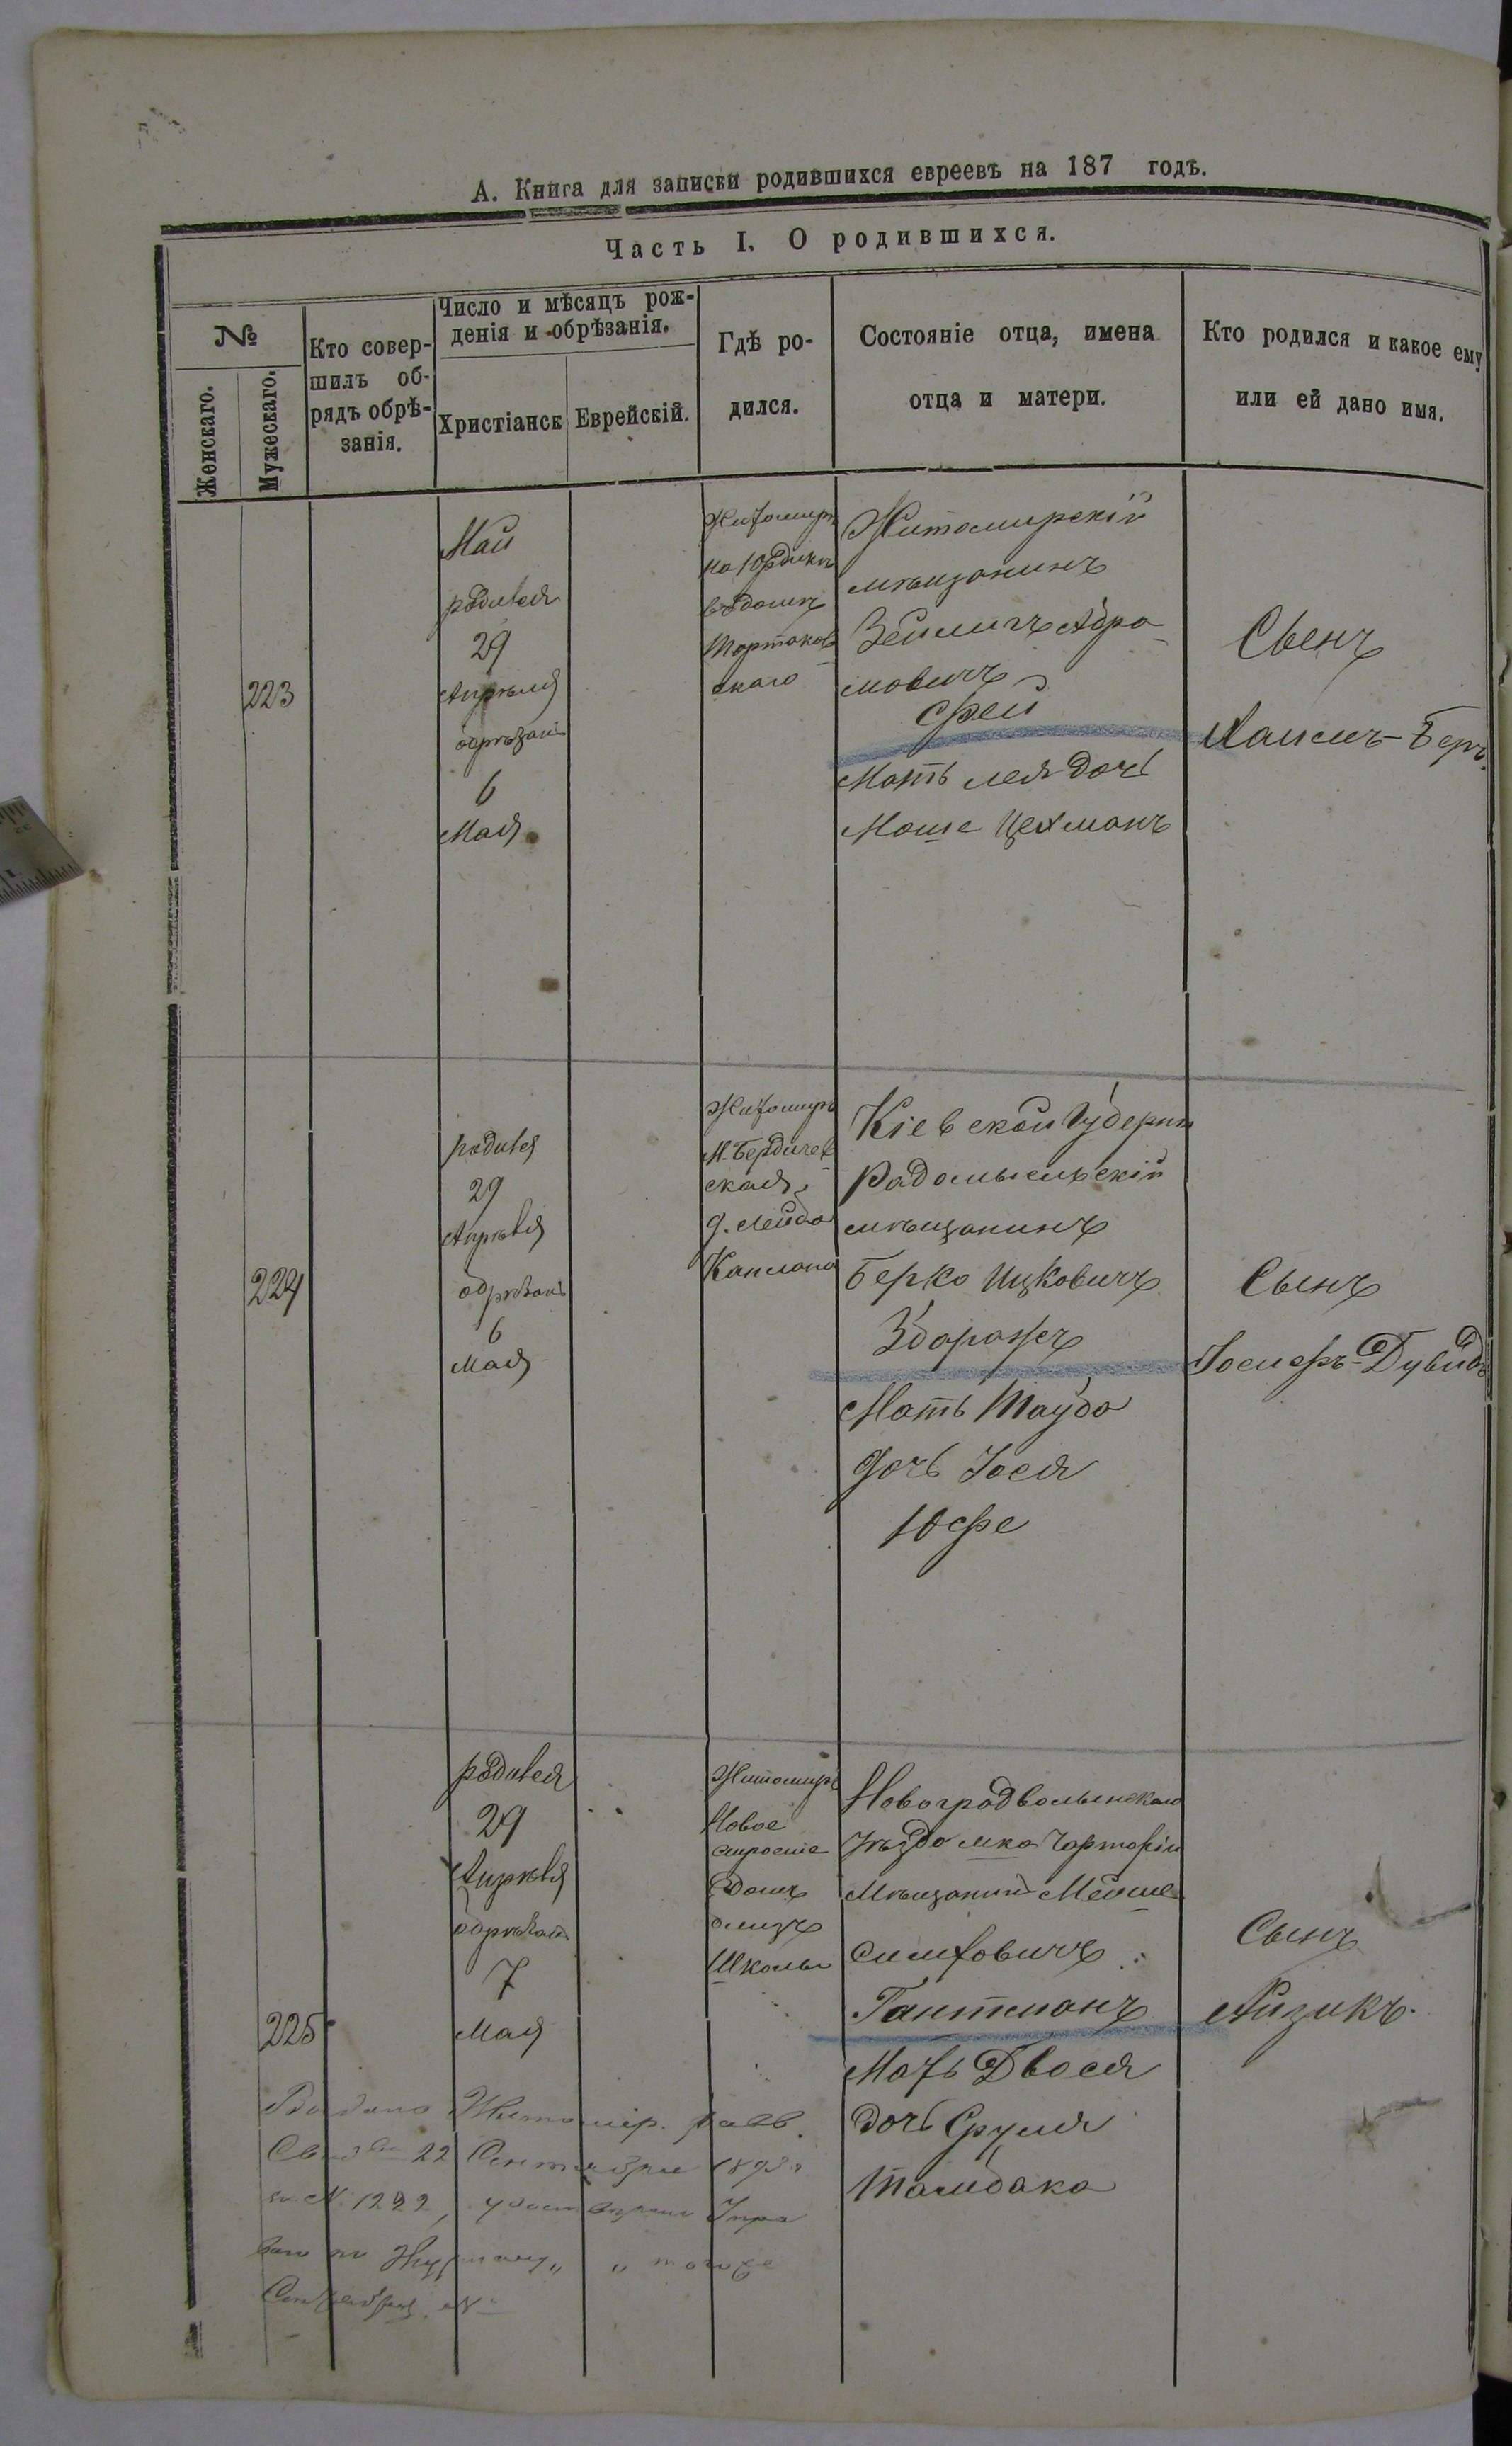 А. Книга для записки родившихся евреевъ на 187 годъ.
Часть I. О родившихся.
№
Женскаго.
Мужескаго.
Кто совер-
шилъ об-
рядъ обрѣ-
занія.
Число и мѣсяцъ рож-
денія и обрѣзанія.
Христіанск
Еврейскій.
Гдѣ ро-
дился.
Состояніе отца, имена
отца и матери.
Кто родился и какое ему
или ей дано имя.
223
Май
родился
29
Апрѣля
обрѣзанъ
6
Мая
Житомиръ
на
въ домѣ
скаго
Житомирскій
мѣщанинъ
Зейлигъ Абра-
мовичъ
Фрей
Мать Лея дочь
Моше Цехманъ
Сынъ
Хаимъ-Беръ.
224
родился
29
Апрѣля
обрѣзанъ
6
Мая
Житомиръ
М. Бердичев-
ская
д. Лейба
Каплана
Кіевской Губерніи
Радомысльскій
мѣщанинъ
Берко Ицковичъ
Збаражъ
Мать Тауба
дочь Іося
Юфе
Сынъ
Іосифъ-Дувидъ
225
родился
29
Апрѣля
обрѣзанъ
7
Мая
Житомиръ
Новое
строеніе
домъ
близъ
Школы
Новоградволынскаго
уѣзда мка Чарторіи
Мѣщанинъ Мейше
Гантманъ
Мать Двося
дочь Сруля
Сынъ
Айзикъ.
Выдано Житомір. равв.
22 Сентября 189
за № 1292,